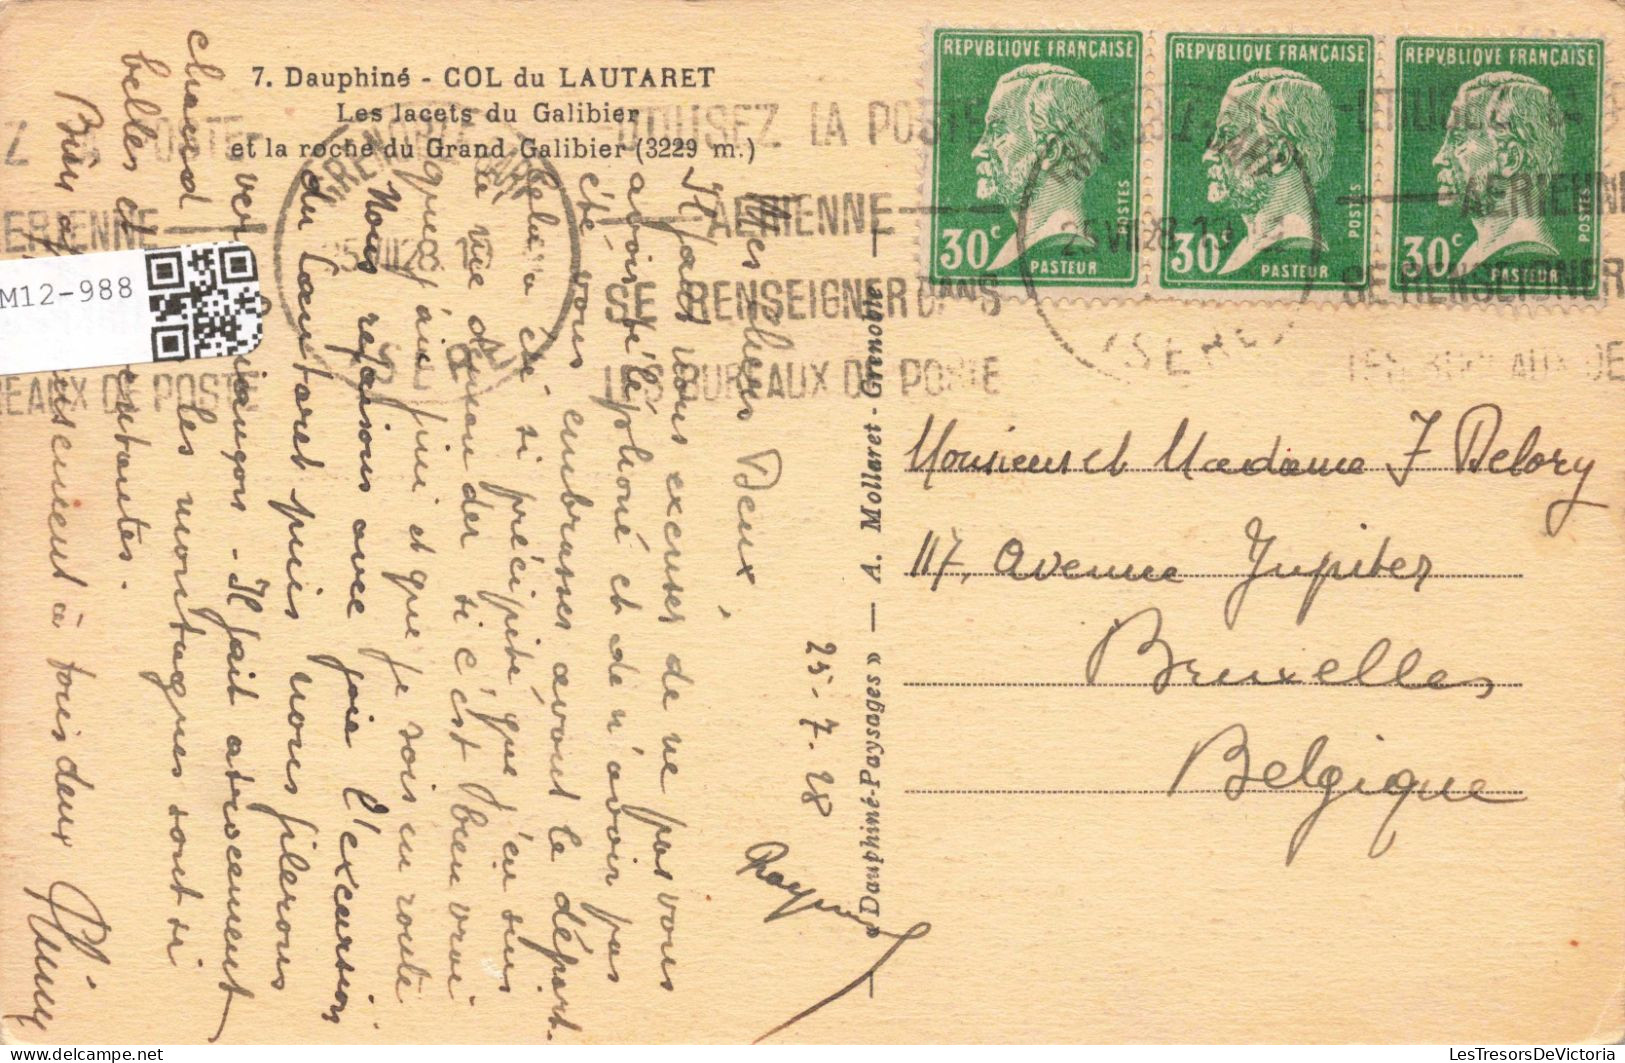 7. Dauphiné - COL du LAUTARET
Les lacets du Galibier
et la roche du Grand Galibier (3229 m.)
REPVBLIQVE FRANÇAISE
30c
POSTES
PASTEUR
REPVBLIQVE FRANÇAISE
30c
POSTES
PASTEUR
REPVBLIQVE FRANÇAISE
30c
POSTES
PASTEUR
GRENOBLE GARE
25 VII 28
UTILISEZ LA POSTE
AERIENNE
SE RENSEIGNER DANS
LES BUREAUX DE POSTE
25 VII 28
ISERE
AERIENNE
SE RENSEIGNER
M12-988
25-7-28
Mes chers Deux,
Il faut nous excuser de ne pas vous
avoir téléphoné et de n'avoir pas
été vous embrasser avant le départ.
Cela a été si précipité que j'en suis
à me demander si c'est bien vrai
que j'ai fini et que je sois en route
Nous refaisons avec joie l'excursion
du Lautaret puis nous filerons
vers Briançon - Il fait atrocement
chaud les montagnes sont si
belles et
Bien affectueusement à tous deux
« Dauphiné-Paysages » — A. Mollaret - Grenoble —
Monsieur et Madame J Delory
117, Avenue Jupiter
Bruxelles
Belgique
LesTresorsDeVictoria